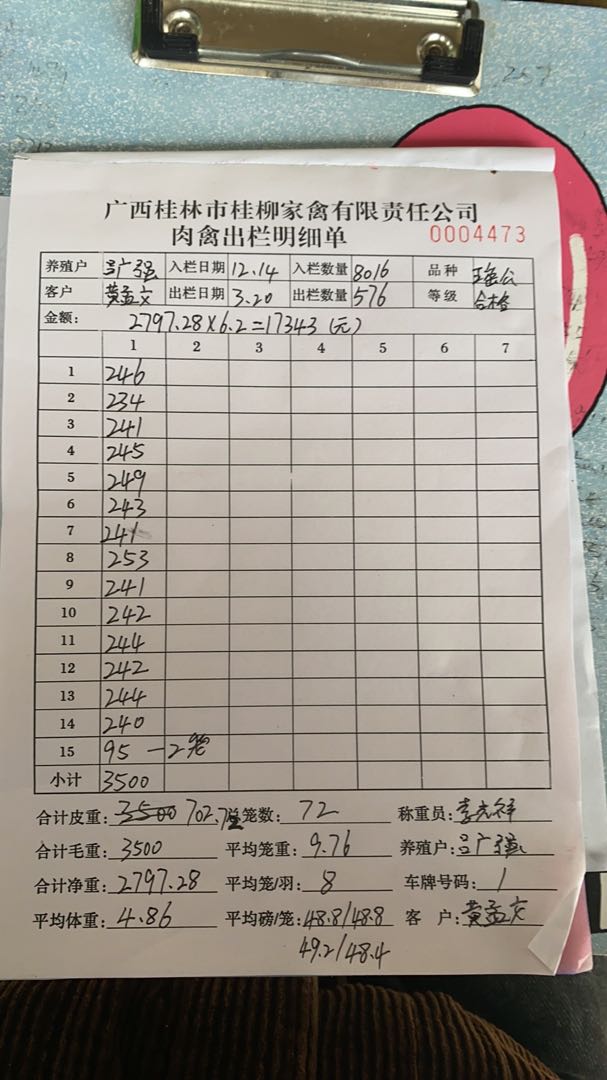 广西桂林市桂柳家禽有限责任公司
肉禽出栏明细单 0004473
养殖户 吕广强 入栏日期 12.14 入栏数量 8016 品种
客户 黄孟交 出栏日期 3.20 出栏数量 576 等级 合格
金额: 2797.28×6.2=17343(元)
1 2 3 4 5 6 7
1 246
2 234
3 241
4 245
5 249
6 243
7 241
8 253
9 241
10 242
11 244
12 242
13 244
14 240
15 95 —2笼
小计 3500
合计皮重: 3500 702.72 总笼数: 72 称重员:
合计毛重: 3500 平均笼重: 9.76 养殖户: 吕广强
合计净重: 2797.28 平均笼/羽: 8 车牌号码: 1
平均体重: 4.86 平均磅/笼: 48.8/48.8 客 户: 黄孟交
49.2/48.4